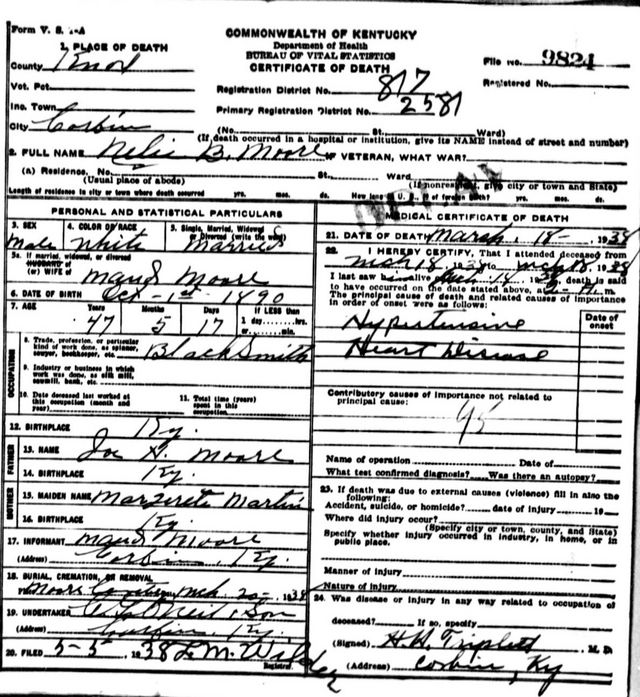 Form V. S. 1-A
COMMONWEALTH OF KENTUCKY
Department of Health
BUREAU OF VITAL STATISTICS
CERTIFICATE OF DEATH
File No. 9824
Registered No.
1. PLACE OF DEATH
County Knox
Registration District No. 817
Vot. Pct.
Primary Registration District No. 2581
Inc. Town
City Corbin (No. St. Ward)
(If death occurred in a hospital or institution, give its NAME instead of street and number)
2. FULL NAME Nelie B. Moore IF VETERAN, WHAT WAR?
(a) Residence, No. St., Ward
(Usual place of abode) (If nonresident, give city or town and State)
Length of residence in city or town where death occurred yrs. mos. ds. How long in U. S., if of foreign birth? yrs. mos. ds.
PERSONAL AND STATISTICAL PARTICULARS
3. SEX 4. COLOR OR RACE 5. Single, Married, Widowed or Divorced (write the word)
Male White Married
5a. If married, widowed, or divorced
HUSBAND of
(or) WIFE of Maud Moore
6. DATE OF BIRTH Oct - 1st - 1890
7. AGE Years Months Days If LESS than
47 5 17 1 day, hrs. or min.
OCCUPATION
8. Trade, profession, or particular kind of work done, as spinner, sawyer, bookkeeper, etc. BlackSmith
9. Industry or business in which work was done, as silk mill, sawmill, bank, etc.
10. Date deceased last worked at this occupation (month and year)
11. Total time (years) spent in this occupation
12. BIRTHPLACE Ky.
FATHER
13. NAME Joe H. Moore
14. BIRTHPLACE Ky.
MOTHER
15. MAIDEN NAME Margarete Martin
16. BIRTHPLACE Ky.
17. INFORMANT Maud Moore
(Address) Corbin, Ky.
18. BURIAL, CREMATION, OR REMOVAL
Moore Mch 20 - 1938
19. UNDERTAKER & Son
(Address) Corbin, Ky.
20. FILED 5-5 1938 Registrar.
MEDICAL CERTIFICATE OF DEATH
21. DATE OF DEATH March, 18 - 1938
22. I HEREBY CERTIFY, That I attended deceased from
Mch 18 1938 to Mch 18, 1938
I last saw alive on 18 death is said
to have occurred on the date stated above, at m.
The principal cause of death and related causes of importance in order of onset were as follows:
Date of onset
Hypertensive
Heart Disease
Contributory causes of importance not related to principal cause:
95
Name of operation Date of
What test confirmed diagnosis? Was there an autopsy?
23. If death was due to external causes (violence) fill in also the following:
Accident, suicide, or homicide? date of injury 19
Where did injury occur?
(Specify city or town, county, and State)
Specify whether injury occurred in industry, in home, or in public place.
Manner of injury
Nature of injury
24. Was disease or injury in any way related to occupation of
deceased? If so, specify
(Signed) H. H. Triplett M. D.
(Address) Corbin, Ky